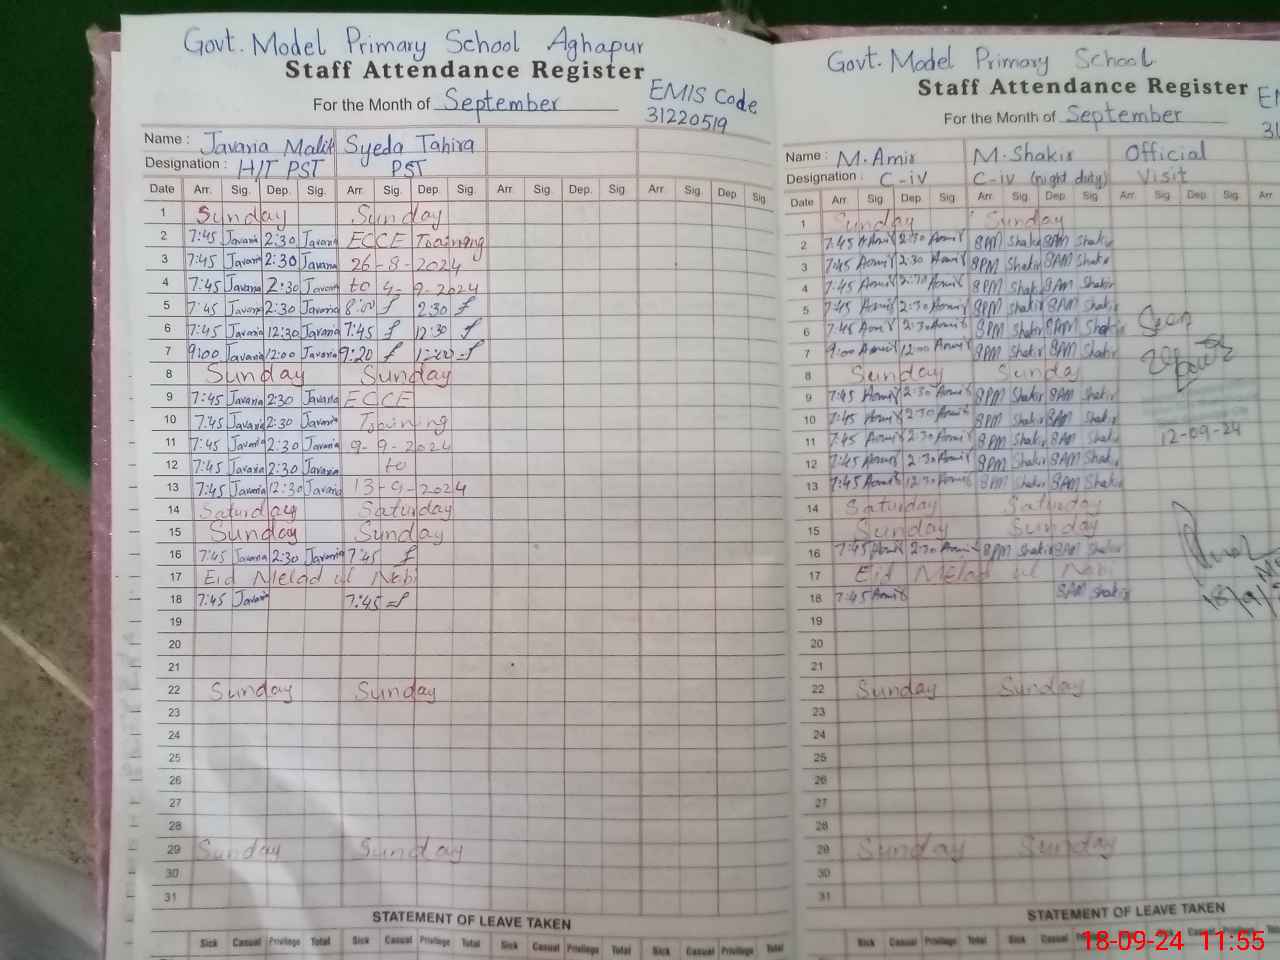 Govt. Model Primary School Aghapur
Staff Attendance Register
For the Month of September
EMIS Code
31220519
Name : Javaria Malik Syeda Tahira
Designation : H/T PST PST
Date Arr. Sig. Dep. Sig. Arr. Sig. Dep. Sig. Arr. Sig. Dep. Sig. Arr. Sig. Dep. Sig.
1 Sunday Sunday
2 7:45 Javaria 2:30 Javaria ECCE Training
3 7:45 Javaria 2:30 Javaria 26-8-2024
4 7:45 Javaria 2:30 Javaria to 4-9-2024
5 7:45 Javaria 2:30 Javaria 8:00 2:30
6 7:45 Javaria 12:30 Javaria 7:45 12:30
7 9:00 Javaria 12:00 Javaria 9:20 12:00
8 Sunday Sunday
9 7:45 Javaria 2:30 Javaria ECCE
10 7:45 Javaria 2:30 Javaria Training
11 7:45 Javaria 2:30 Javaria 9-9-2024
12 7:45 Javaria 2:30 Javaria to
13 7:45 Javaria 12:30 Javaria 13-9-2024
14 Saturday Saturday
15 Sunday Sunday
16 7:45 Javaria 2:30 Javaria 7:45
17 Eid Melad ul Nabi
18 7:45 Javaria 7:45
19
20
21
22 Sunday Sunday
23
24
25
26
27
28
29 Sunday Sunday
30
31
STATEMENT OF LEAVE TAKEN
Sick Casual Privilege Total Sick Casual Privilege Total Sick Casual Privilege Total Sick Casual Privilege Total
Govt. Model Primary School
Staff Attendance Register
For the Month of September
Name : M. Amir M. Shakir Official
Designation : C-iv C-iv (night duty) Visit
Date Arr. Sig. Dep. Sig. Arr. Sig. Dep. Sig. Arr. Sig. Dep. Sig. Arr.
1 Sunday Sunday
2 7:45 Aamir 2:30 Aamir 8PM Shakir 8AM Shakir
3 7:45 Aamir 2:30 Aamir 8PM Shakir 8AM Shakir
4 7:45 Aamir 2:30 Aamir 8PM Shakir 8AM Shakir
5 7:45 Aamir 2:30 Aamir 8PM Shakir 8AM Shakir
6 7:45 Aamir 2:30 Aamir 8PM Shakir 8AM Shakir Seen
7 9:00 Aamir 12:00 Aamir 8PM Shakir 8AM Shakir
8 Sunday Sunday
9 7:45 Aamir 2:30 Aamir 8PM Shakir 8AM Shakir
10 7:45 Aamir 2:30 Aamir 8PM Shakir 8AM Shakir
11 7:45 Aamir 2:30 Aamir 8PM Shakir 8AM Shakir 12-09-24
12 7:45 Aamir 2:30 Aamir 8PM Shakir 8AM Shakir
13 7:45 Aamir 12:30 Aamir 8PM Shakir 8AM Shakir
14 Saturday Saturday
15 Sunday Sunday
16 7:45 Aamir 2:30 Aamir 8PM Shakir 8AM Shakir
17 Eid Melad ul Nabi
18 7:45 Aamir 8AM Shakir
19
20
21
22 Sunday Sunday
23
24
25
26
27
28
29 Sunday Sunday
30
31
STATEMENT OF LEAVE TAKEN
Sick Casual Privilege Total Sick Casual
18-09-24 11:55